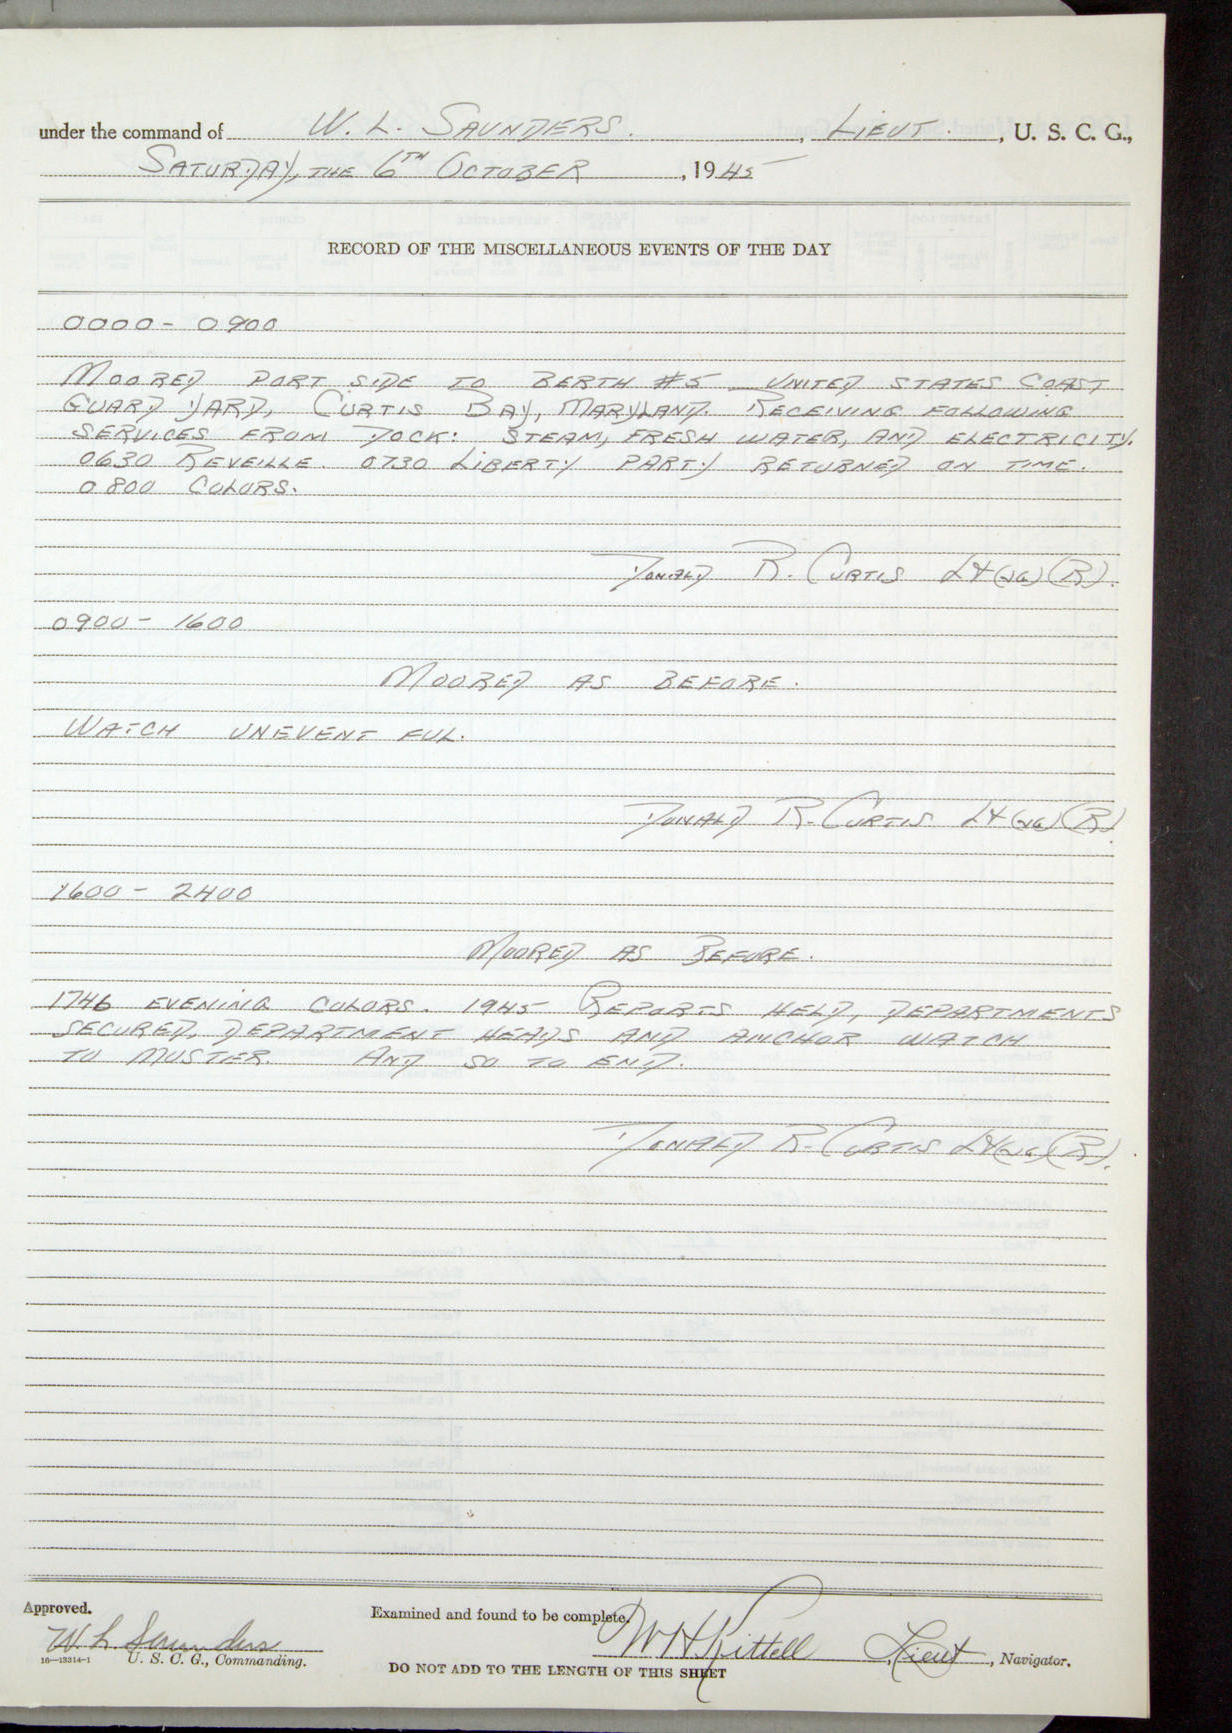 under the command of W. L. SAUNDERS. , LIEUT. , U. S. C. G.,
SATURDAY, THE 6TH OCTOBER , 1945
RECORD OF THE MISCELLANEOUS EVENTS OF THE DAY
0000 - 0900
MOORED PORT SIDE TO BERTH #5 UNITED STATES COAST
GUARD YARD, CURTIS BAY, MARYLAND. RECEIVING FOLLOWING
SERVICES FROM DOCK: STEAM, FRESH WATER, AND ELECTRICITY.
0630 REVEILLE. 0730 LIBERTY PARTY RETURNED ON TIME.
0800 COLORS.
DONALD R. CURTIS Lt (JG) (R).
0900 - 1600
MOORED AS BEFORE.
WATCH UNEVENT FUL.
DONALD R. CURTIS Lt (JG) (R).
1600 - 2400
MOORED AS BEFORE.
1746 EVENING COLORS. 1945 REPORTS HELD, DEPARTMENTS
SECURED, DEPARTMENT HEADS AND ANCHOR WATCH
TO MUSTER. AND SO TO END.
DONALD R. CURTIS Lt (JG) (R).
Approved. Examined and found to be complete.
W. L. Saunders W H Kittell , Lieut , Navigator.
16—13314-1 U. S. C. G., Commanding.
DO NOT ADD TO THE LENGTH OF THIS SHEET